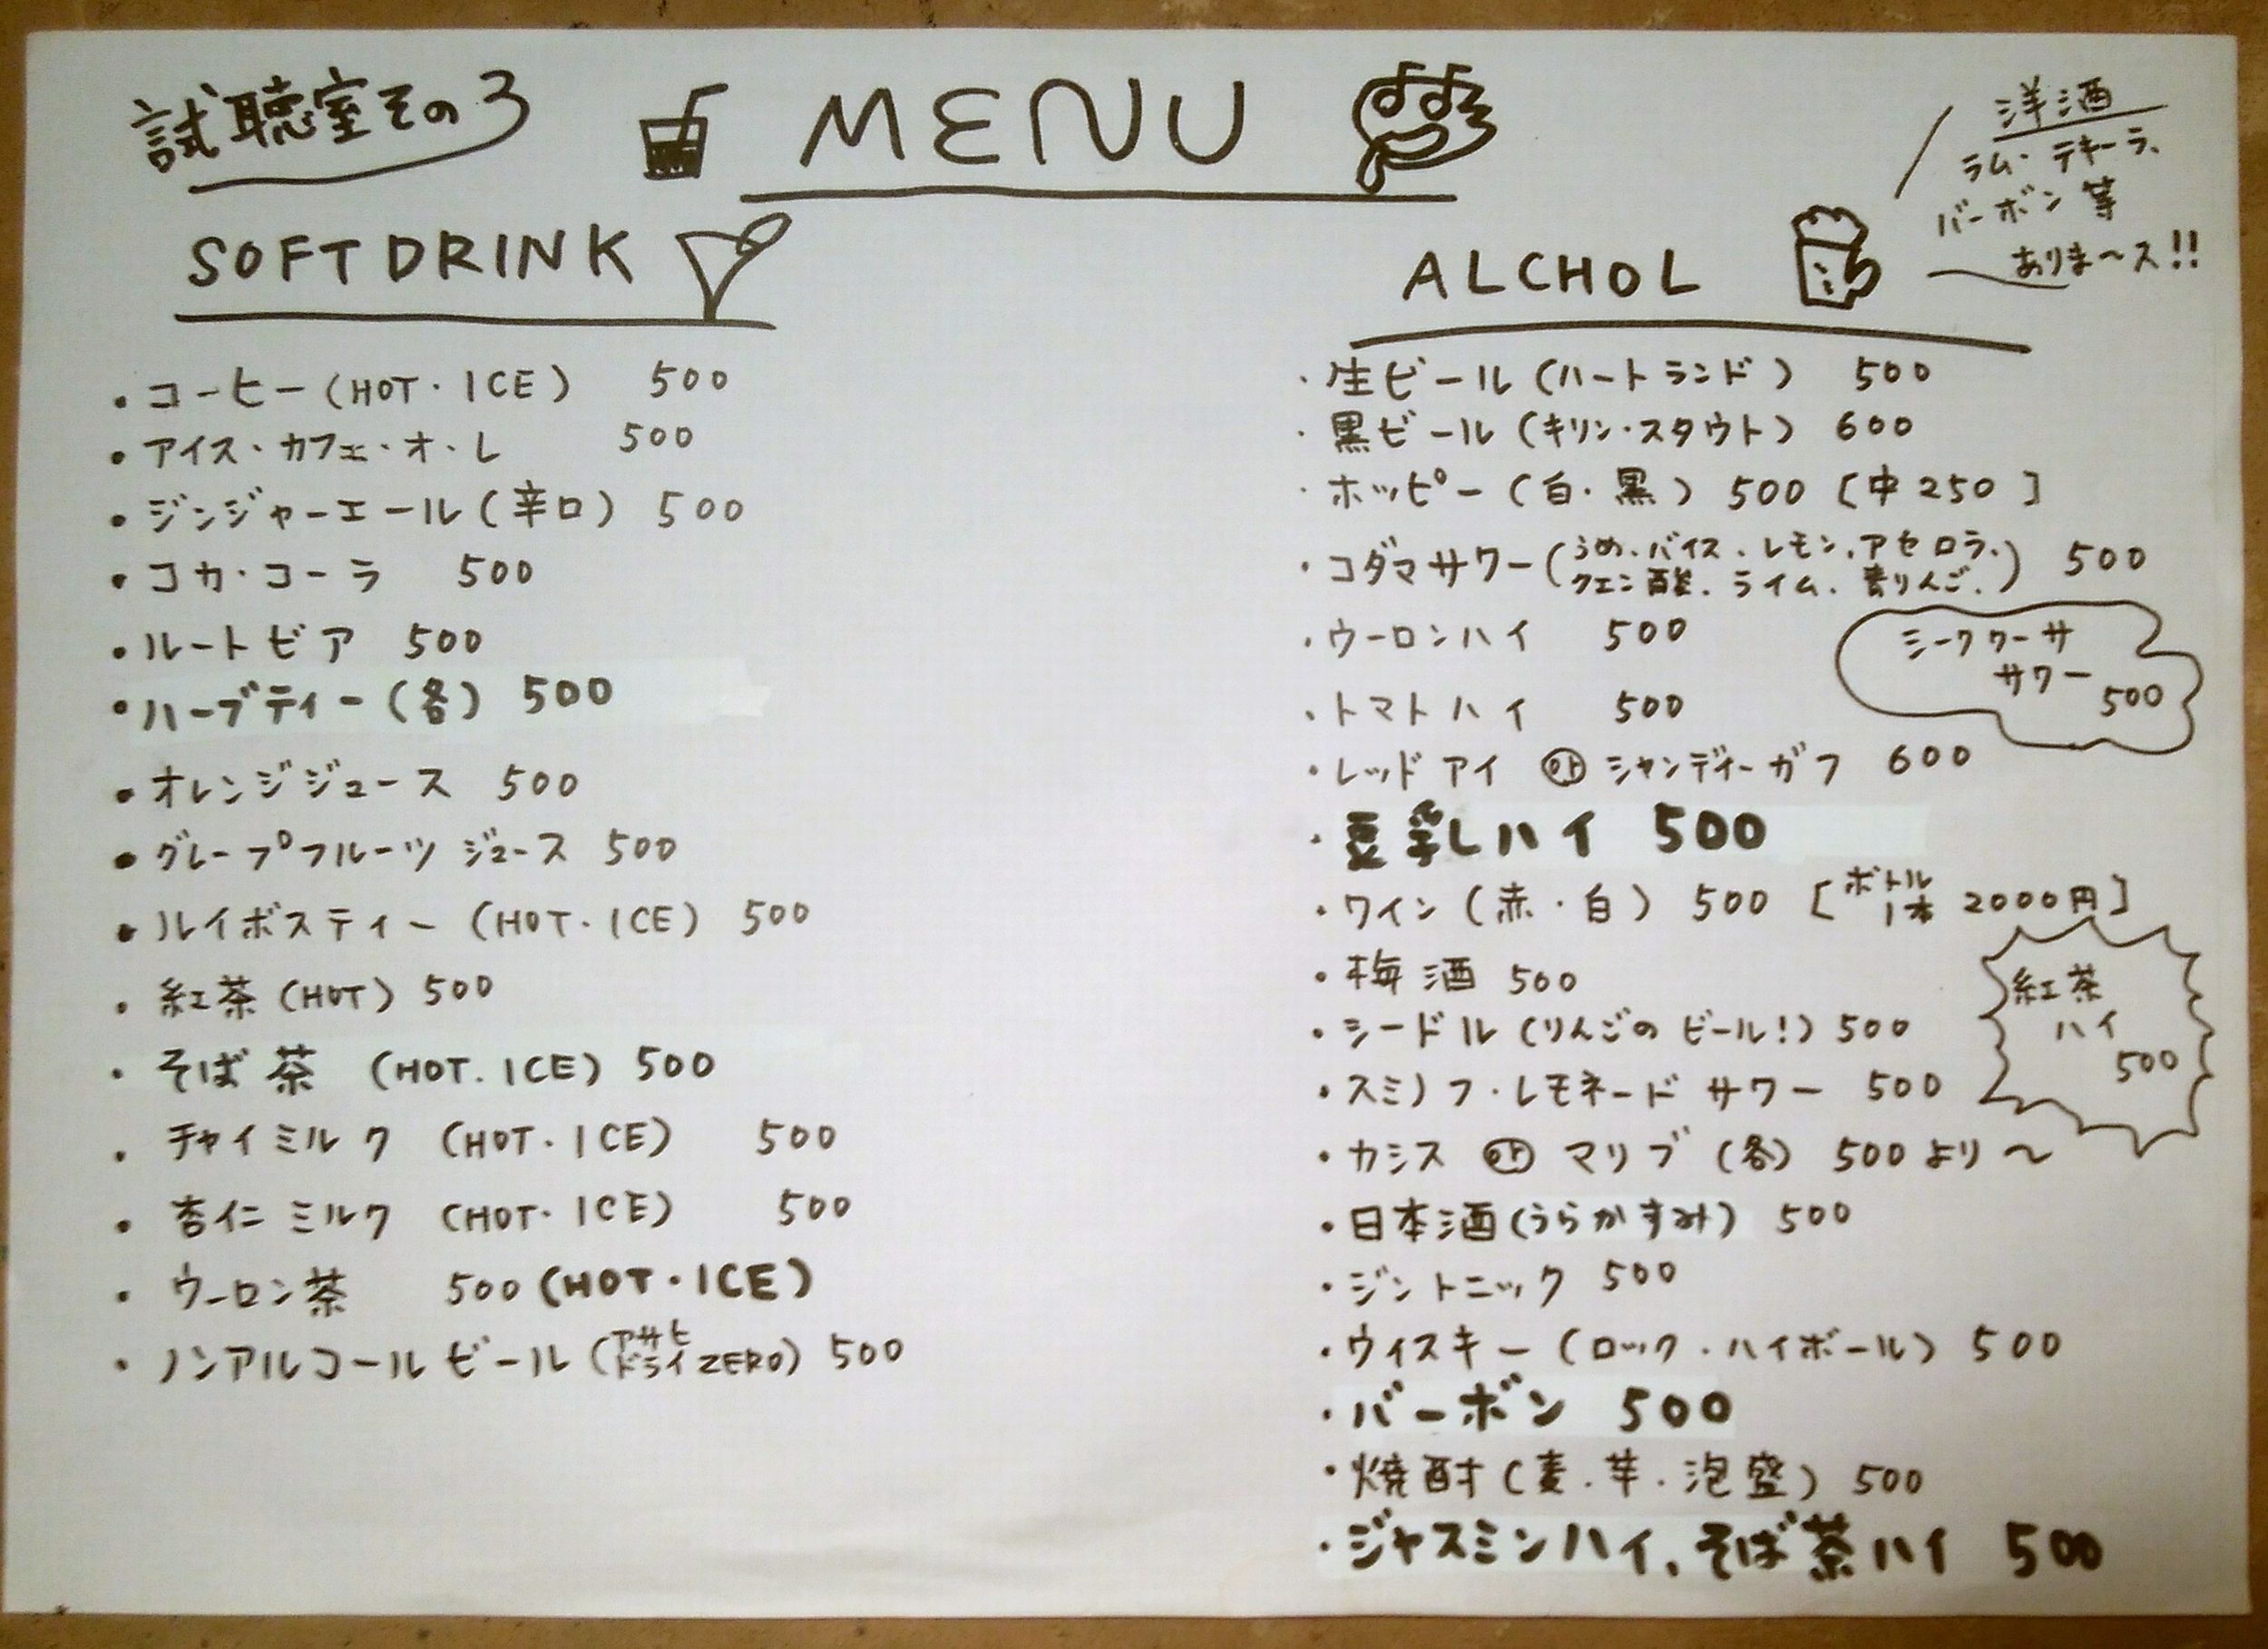 試聴室その3
MENU
洋酒
ラム・テキーラ、
バーボン等
ありま〜ス!!
SOFT DRINK
・コーヒー(HOT・ICE) 500
・アイス・カフェ・オ・レ 500
・ジンジャーエール(辛口) 500
・コカ・コーラ 500
・ルートビア 500
・ハーブティー(各) 500
・オレンジジュース 500
・グレープフルーツジュース 500
・ルイボスティー(HOT・ICE) 500
・紅茶(HOT) 500
・そば茶(HOT.ICE) 500
・チャイミルク(HOT・ICE) 500
・杏仁ミルク(HOT・ICE) 500
・ウーロン茶 500(HOT・ICE)
・ノンアルコールビール(アサヒドライZERO) 500
ALCHOL
・生ビール(ハートランド) 500
・黒ビール(キリン・スタウト) 600
・ホッピー(白・黒) 500[中250]
・コダマサワー(うめ、バイス、レモン、アセロラ、
クエン酸、ライム、青りんご、) 500
・ウーロンハイ 500
シークワーサ
サワー
500
・トマトハイ 500
・レッドアイ or シャンディーガフ 600
・豆乳ハイ 500
・ワイン(赤・白) 500[ボトル1本 2000円]
・梅酒 500
紅茶
ハイ
500
・シードル(りんごのビール!) 500
・スミノフ・レモネードサワー 500
・カシス or マリブ(各) 500より〜
・日本酒(うらかすみ) 500
・ジントニック 500
・ウィスキー(ロック・ハイボール) 500
・バーボン 500
・焼酎(麦・芋・泡盛) 500
・ジャスミンハイ、そば茶ハイ 500